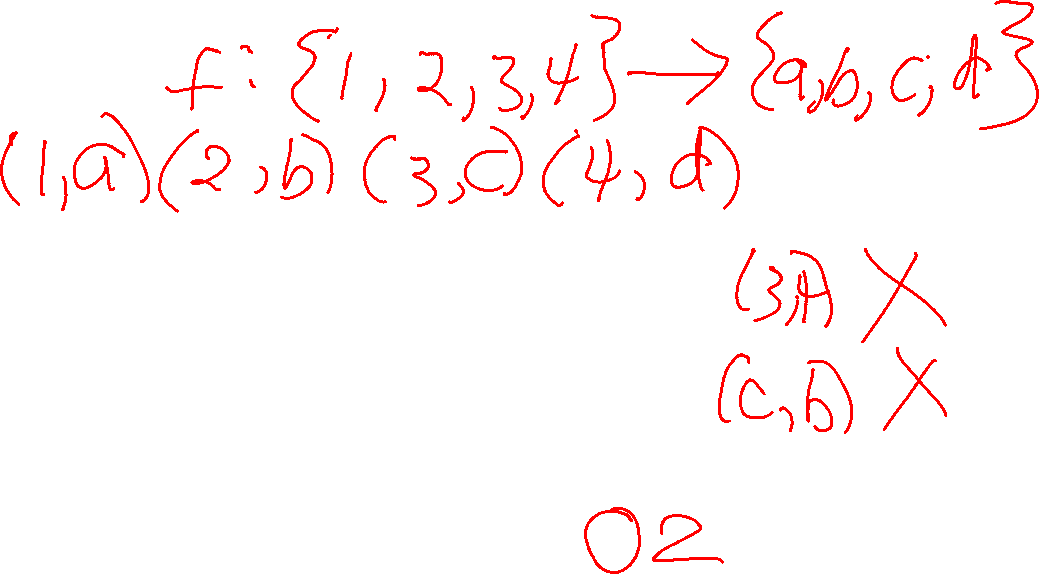 f: {1, 2, 3, 4} → {a, b, c, d}
(1, a) (2, b) (3, c) (4, d)
(3, 4) X
(c, b) X
02